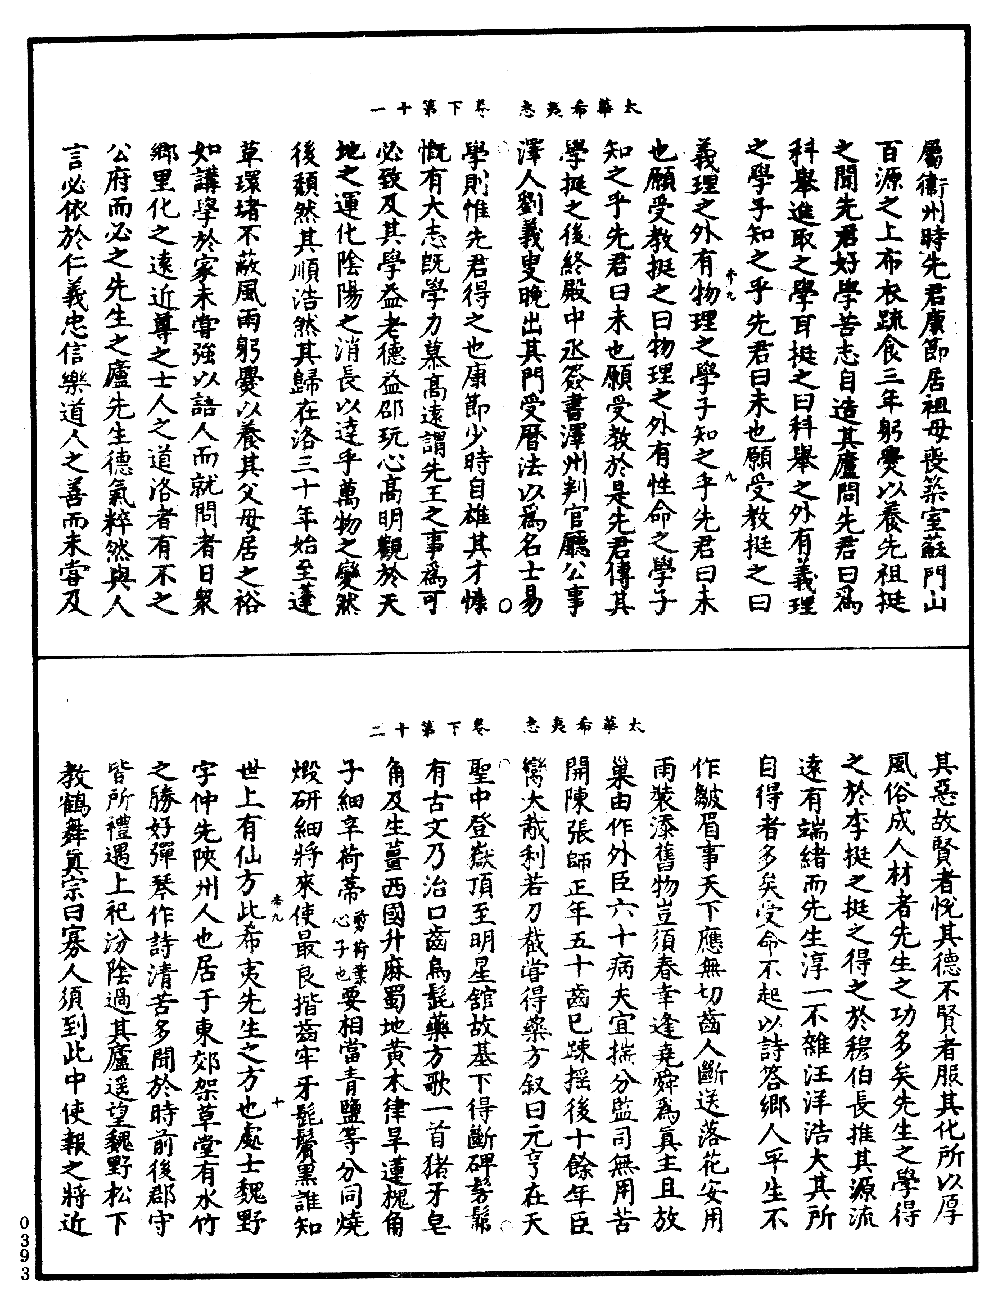 太華希夷志　卷下第十一
屬衛州時先君康節居祖母喪築室蘇門山
百源之上布衣蔬食三年躬爨以養先祖挺
之聞先君好學苦志自造其廬問先君曰爲
科舉進取之學耳挺之曰科舉之外有義理
之學子知之乎先君曰未也願受教挺之曰
卷九　九
義理之外有物理之學子知之乎先君曰未
也願受教挺之曰物理之外有性命之學子
知之乎先君曰未也願受教於是先君傳其
學挺之後終殿中丞簽書澤州判官廳公事
澤人劉義叟晚出其門受曆法以爲名士易
學則惟先君得之也康節少時自雄其才慷
慨有大志旣學力慕高遠謂先王之事爲可
必致及其學益老德益邵玩心高明觀於天
地之運化陰陽之消長以達乎萬物之變然
後頹然其順浩然其歸在洛三十年始至蓬
草環堵不蔽風雨躬爨以養其父母居之裕
如講學於家未嘗強以語人而就問者日衆
鄉里化之遠近尊之士人之道洛者有不之
公府而必之先生之廬先生德氣粹然與人
言必依於仁義忠信樂道人之善而未嘗及
太華希夷志　卷下第十二
其惡故賢者悅其德不賢者服其化所以厚
風俗成人材者先生之功多矣先生之學得
之於李挺之挺之得之於穆伯長推其源流
遠有端緒而先生淳一不雜汪洋浩大其所
自得者多矣受命不起以詩答鄉人平生不
作皺眉事天下應無切齒人斷送落花安用
雨裝添舊物豈須春幸逢堯舜爲眞主且放
巢由作外臣六十病夫宜揣分監司無用苦
開陳張師正年五十齒已踈搖後十餘年臣
臠大胾利若刀截嘗得藥方叙曰元亨在天
聖中登嶽頂至明星館故基下得斷碑髣髴
有古文乃治口齒烏髭藥方歌一首猪牙皂
角及生薑西國升麻蜀地黃木律旱蓮槐角
子細辛荷蒂剪荷葉心子也要相當青鹽等分同燒
煅研細將來使最良揩齒牢牙髭鬢黑誰知
卷九　十
世上有仙方此希夷先生之方也處士魏野
字仲先陝州人也居于東郊架草堂有水竹
之勝好彈琴作詩清苦多聞於時前後郡守
皆所禮遇上祀汾陰過其廬遥望魏野松下
教鶴舞眞宗曰寡人須到此中使報之將近
0393